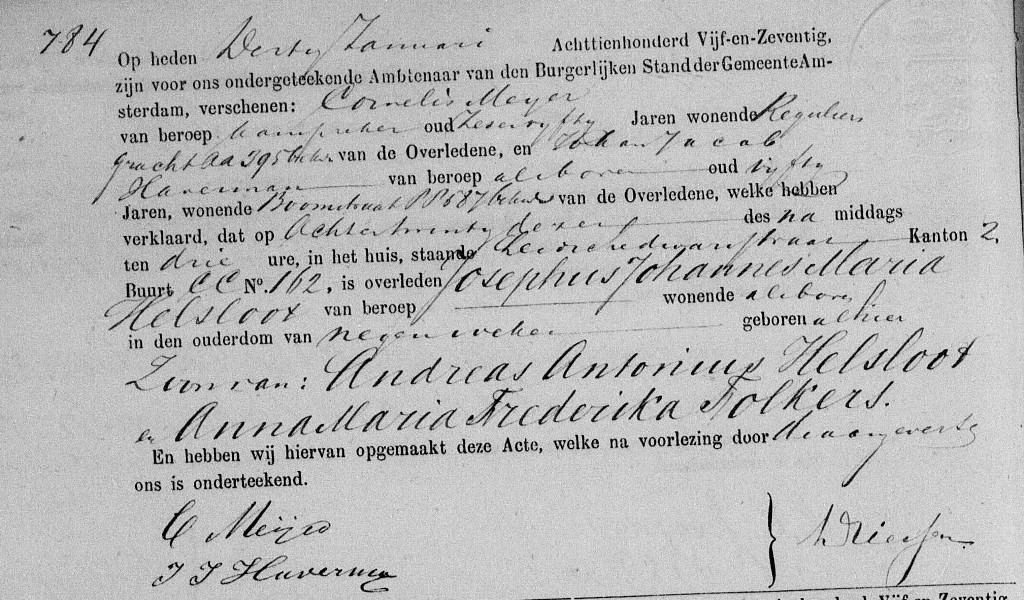 784
Op heden Dertig Januari Achttienhonderd Vijf-en-Zeventig,
zijn voor ons ondergeteekende Ambtenaar van den Burgerlijken Stand der Gemeente Am-
sterdam, verschenen: Cornelis Meyer
van beroep aanspreker oud Zesenvyftig Jaren wonende Reguliers
gracht AA 395 beken van de Overledene, en Johan Jacob
Haverman van beroep als boven oud vyftig
Jaren, wonende Boomstraat PP 587 beken van de Overledene, welke hebben
verklaard, dat op Achtentwintig dezer des na middags
ten drie ure, in het huis, staande Leidschedwarsstraat Kanton 2,
Buurt CC No. 162, is overleden Josephus Johannes Maria
Helsloot van beroep wonende als boven
in den ouderdom van negen weken geboren alhier
Zoon van: Andreas Antonius Helsloot
en Anna Maria Frederika Folkers.
En hebben wij hiervan opgemaakt deze Acte, welke na voorlezing door de aangevers &
ons is onderteekend.
C Meijer
J J Haverman
Achttienhonderd Vijf-en-Zeventig,